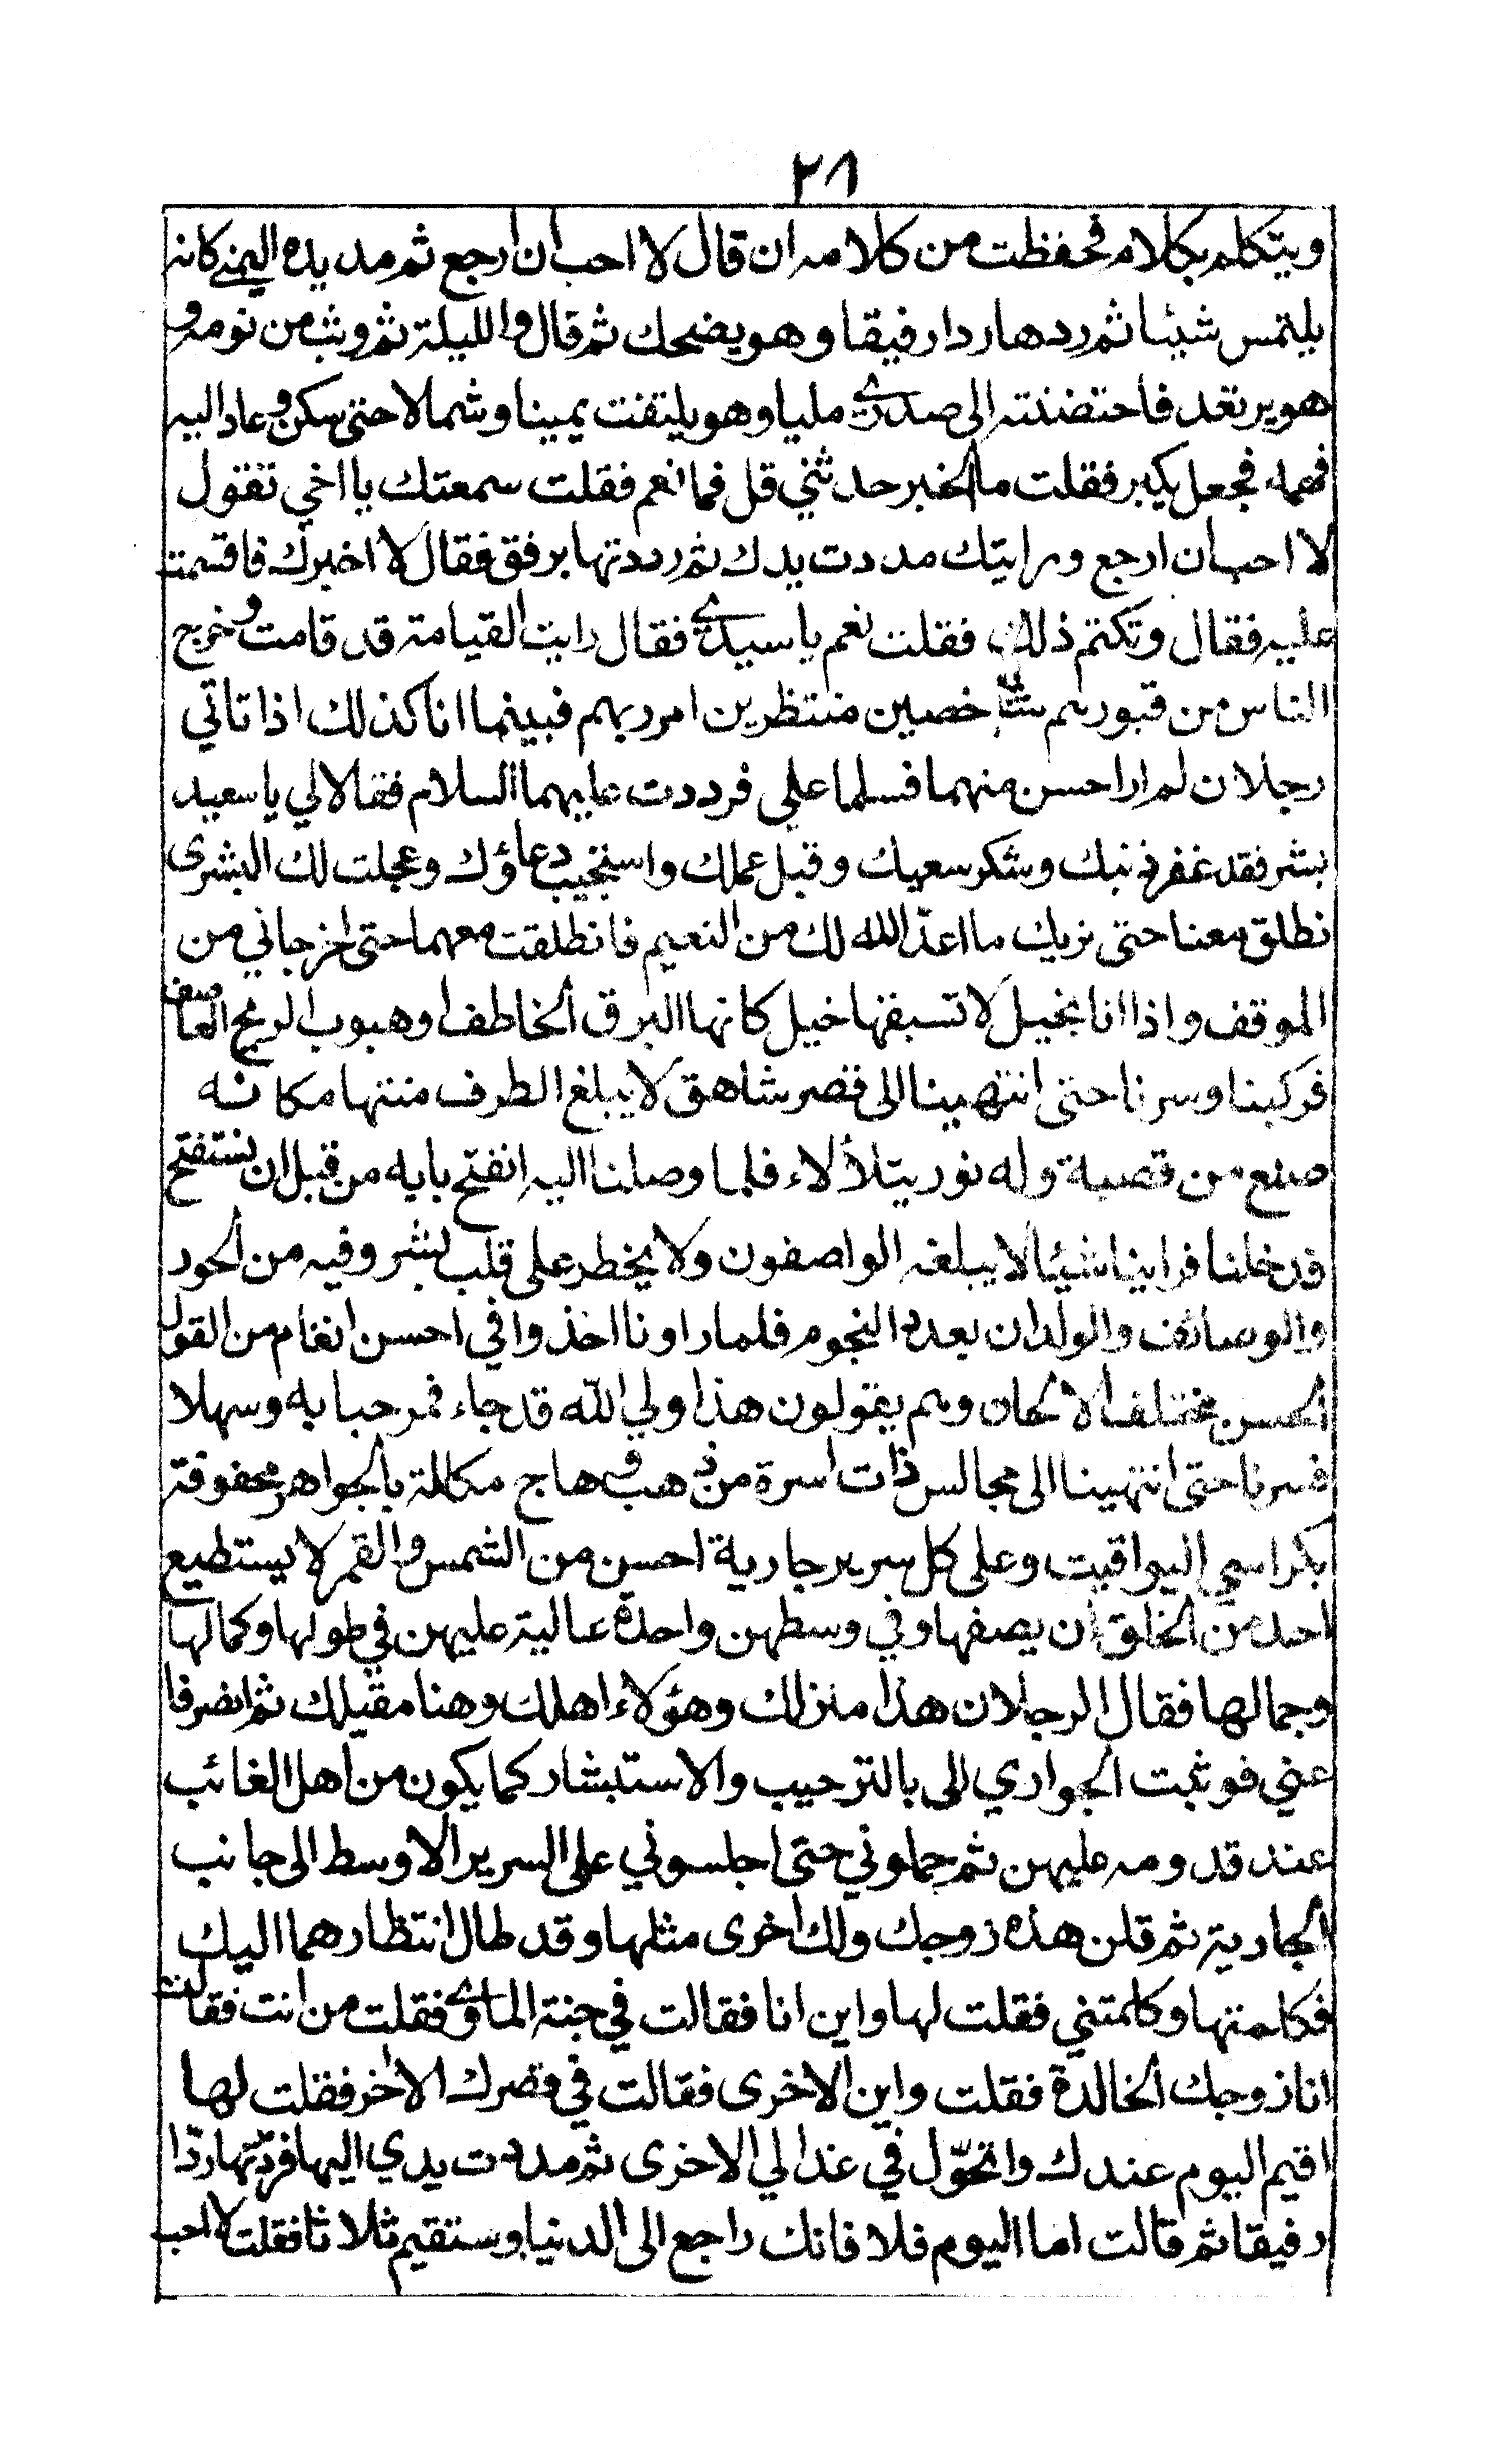 ٢٨
ويتكلم بكلام فحفظت من كلامه ان قال لا احب ان ارجع ثم مد يده اليمنى كانه
يلتمس شيئا ثم ردها ردا رفيقا وهو يضحك ثم قال والليلة ثم وثب من نومه و
هو يرتعد فاحتضنته الى صدري مليا وهو يلتفت يمينا وشمالا حتى سكن وعاد اليه
فهمه فجعل يكبر فقلت ما الخبر حدثني قل فما نعم فقلت سمعتك يا اخي تقول
لا احب ان ارجع ورايتك مددت يدك ثم رددتها برفق فقال لا اخبرك فاقسمت
عليه فقال وتكتم ذلك فقلت نعم يا سيدي فقال رايت القيامة قد قامت وخرج
الناس من قبورهم شاخصين منتظرين امر ربهم فبينما انا كذلك اذا تاتي
رجلان لم ار احسن منهما فسلما علي فرددت عليهما السلام فقالا لي يا سعيد
بشر فقد غفر ذنبك وشكر سعيك وقبل عملك واستجيب دعاؤك وعجلت لك البشرى
نطلق معنا حتى نريك ما اعدّ الله لك من النعيم فانطلقت معهما حتى اخرجاني من
الموقف واذا انا بخيل لا تسبقها خيل كانها البرق الخاطف او هبوب الريح العاصف
فركبنا وسرنا حتى انتهينا الى قصر شاهق لا يبلغ الطرف منتها مكانه
صنع من قصبة وله نور يتلألاء فلما وصلنا اليه انفتح بابه من قبل ان نستفتح
فدخلنا فراينا شيئا لا يبلغه الواصفون ولا يخطر على قلب بشر وفيه من الحور
والوصائف والولدان بعدد النجوم فلما راونا اخذوا في احسن انغام من القول
الحسن مختلف الالحان وهم يقولون هذا ولي الله قد جاء فمرحبا به وسهلا
فسرنا حتى انتهينا الى مجالس ذات اسرة من ذهب وهاج مكللة بالجواهر محفوفة
بكراسي اليواقيت وعلى كل سرير جارية احسن من الشمس والقمر لا يستطيع
احد من الخلق ان يصفها وفي وسطهن واحدة عالية عليهن في طولها وكمالها
وجمالها فقال الرجلان هذا منزلك وهؤلاء اهلك وهنا مقيلك ثم انصرفا
عني فوثبت الجواري الى بالترحيب والاستبشار كما يكون من اهل الغائب
عند قدومه عليهن ثم حملوني حتى اجلسوني على السرير الاوسط الى جانب
الجارية ثم قلن هذه زوجك ولك اخرى مثلها وقد طال انتظارهما اليك
فكلمتها وكلمتني فقلت لها واين انا فقالت في جنة الماوى فقلت من انت فقالت
انا زوجك الخالدة فقلت واين الاخرى فقالت في قصرك الاخر فقلت لها
اقيم اليوم عندك واتحوّل في غدا لي الاخرى ثم مددت يدي اليها فردّتها ردّا
رفيقا ثم قالت اما اليوم فلا فانك راجع الى الدنيا وستقيم ثلاثا فقلت لا احب